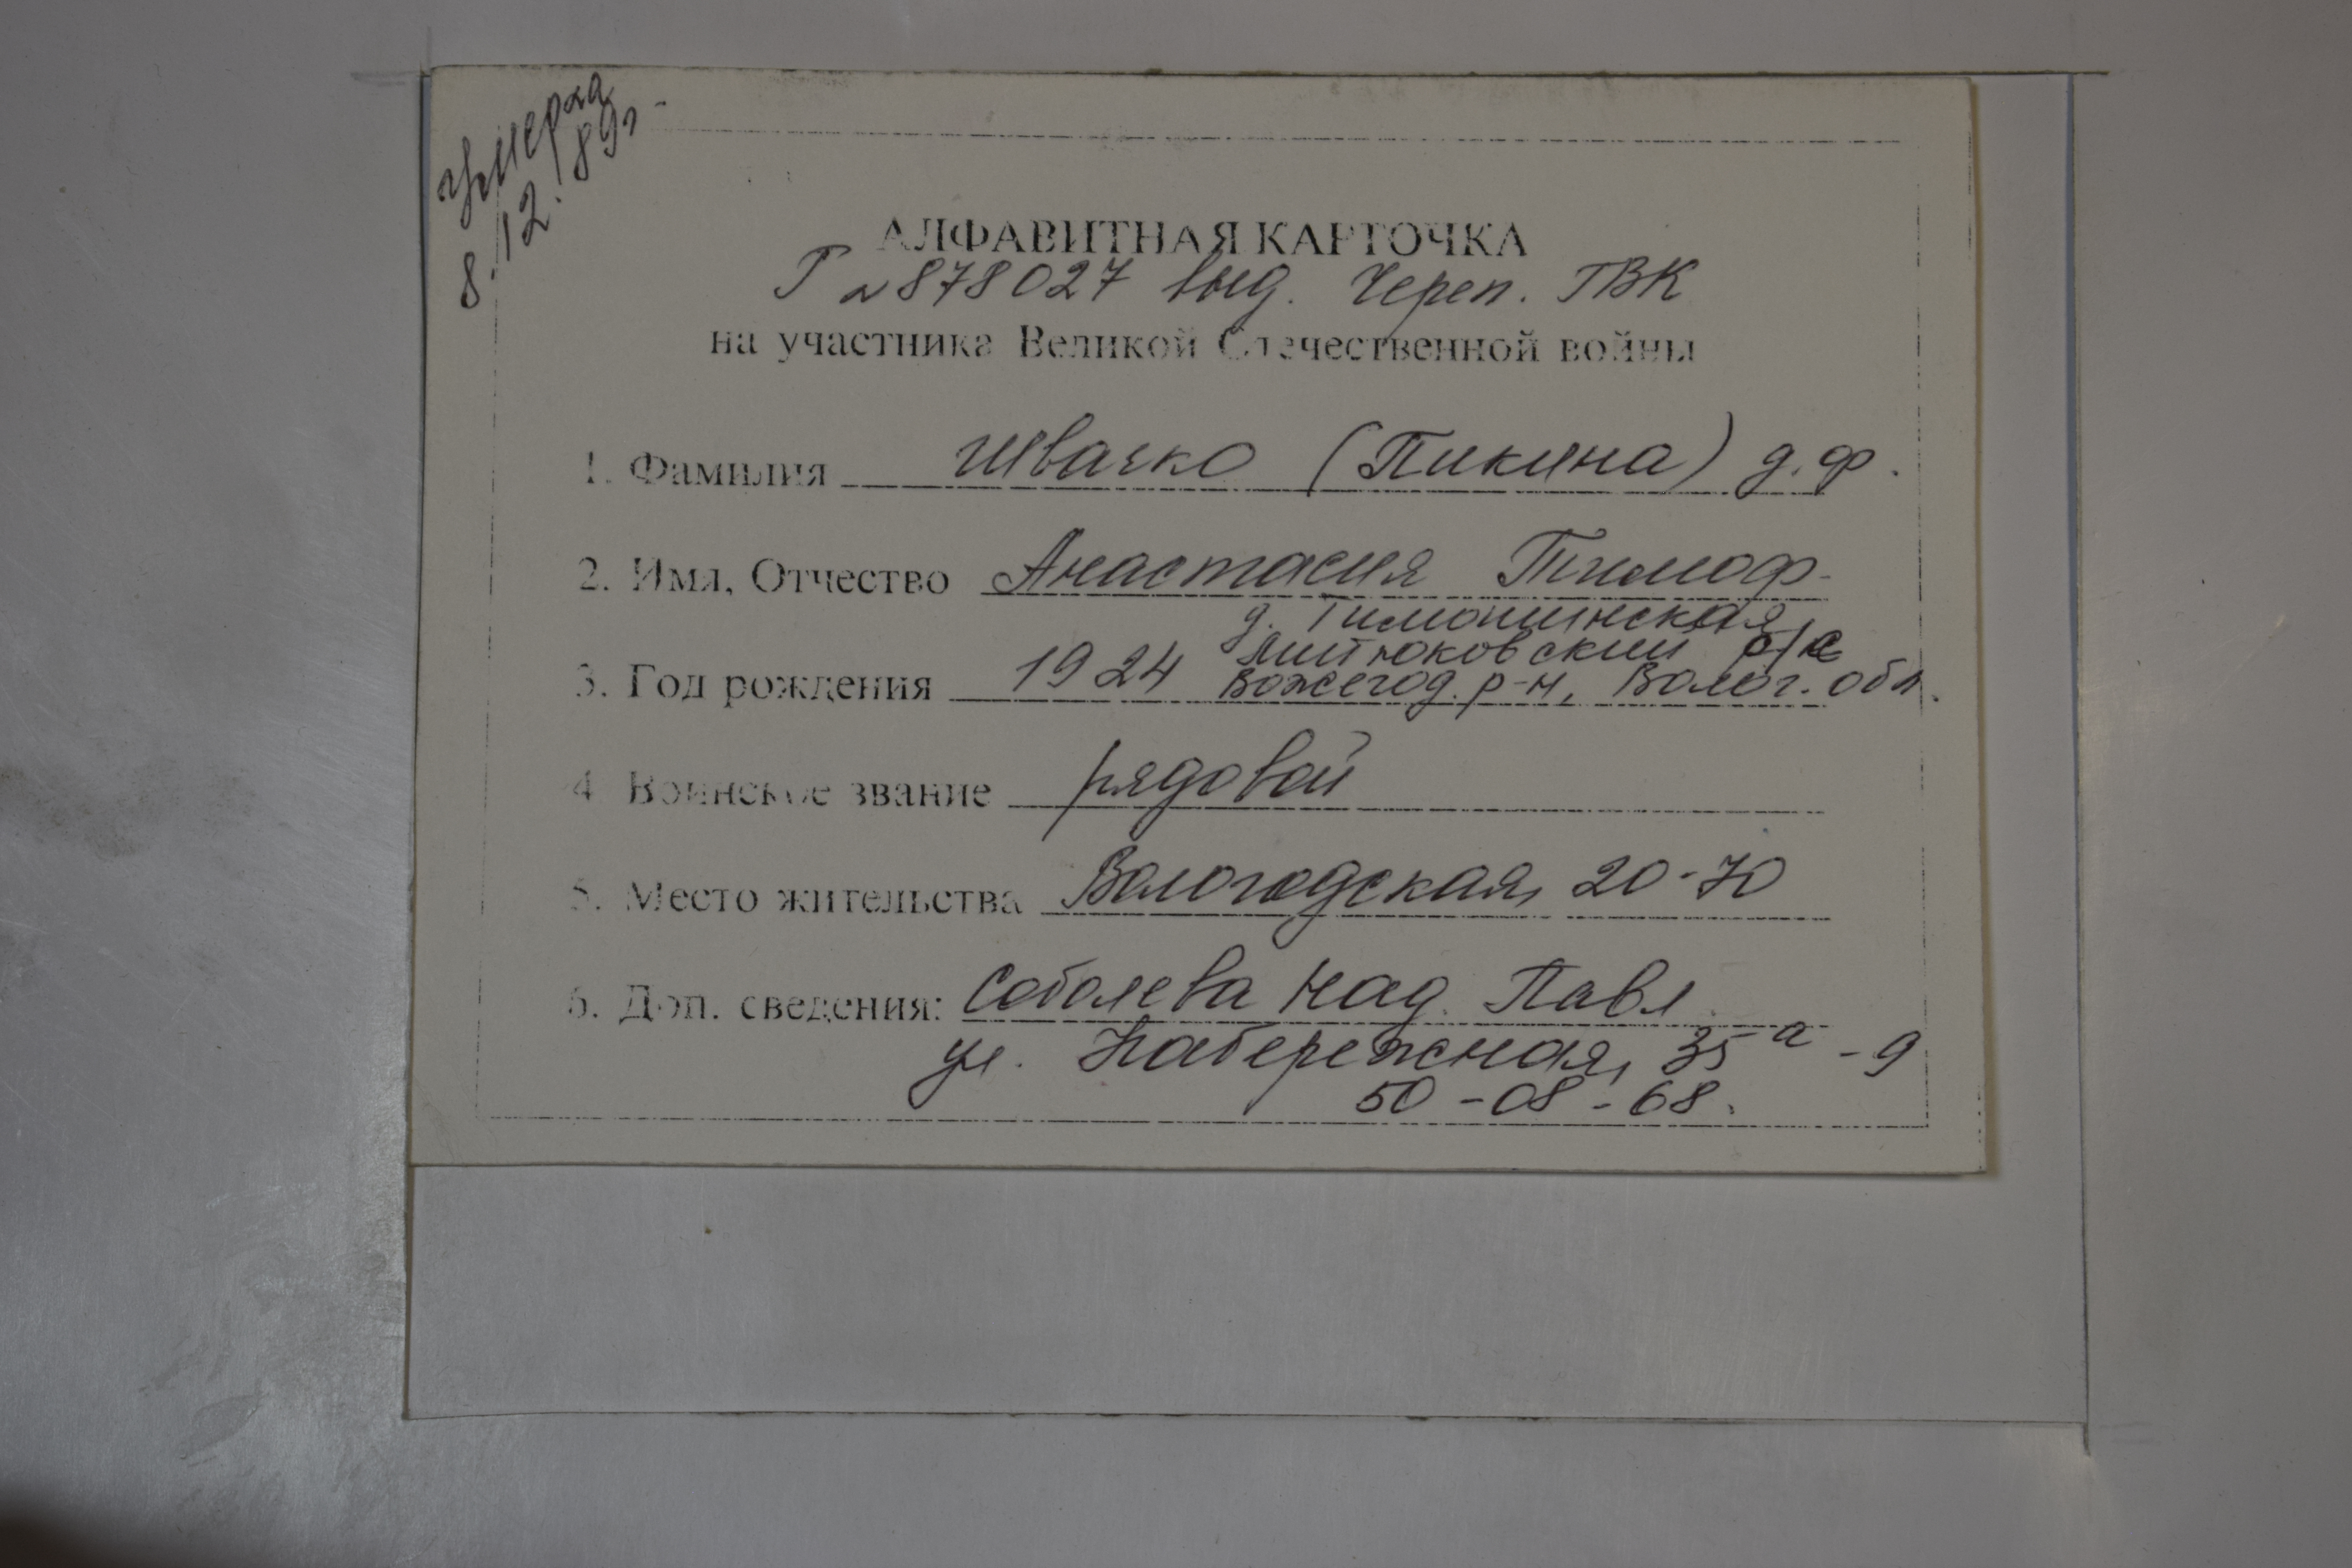 умерла
8.12.89г.
АЛФАВИТНАЯ КАРТОЧКА
Г № 878027 выд. Череп. ГВК
на участника Великой Отечественной войны
1. Фамилия Швачко (Пикина) д.ф.
2. Имя, Отчество Анастасия Тимоф.
д. Тимошинская,
Митюковский с/с
3. Год рождения 1924 Вожегод. р-н, Волог. обл.
4. Воинское звание рядовой
5. Место жительства Вологодская, 20-70
6. Доп. сведения: Соболева Над. Павл.
ул. Набережная, 35а - 9
50-08-68.